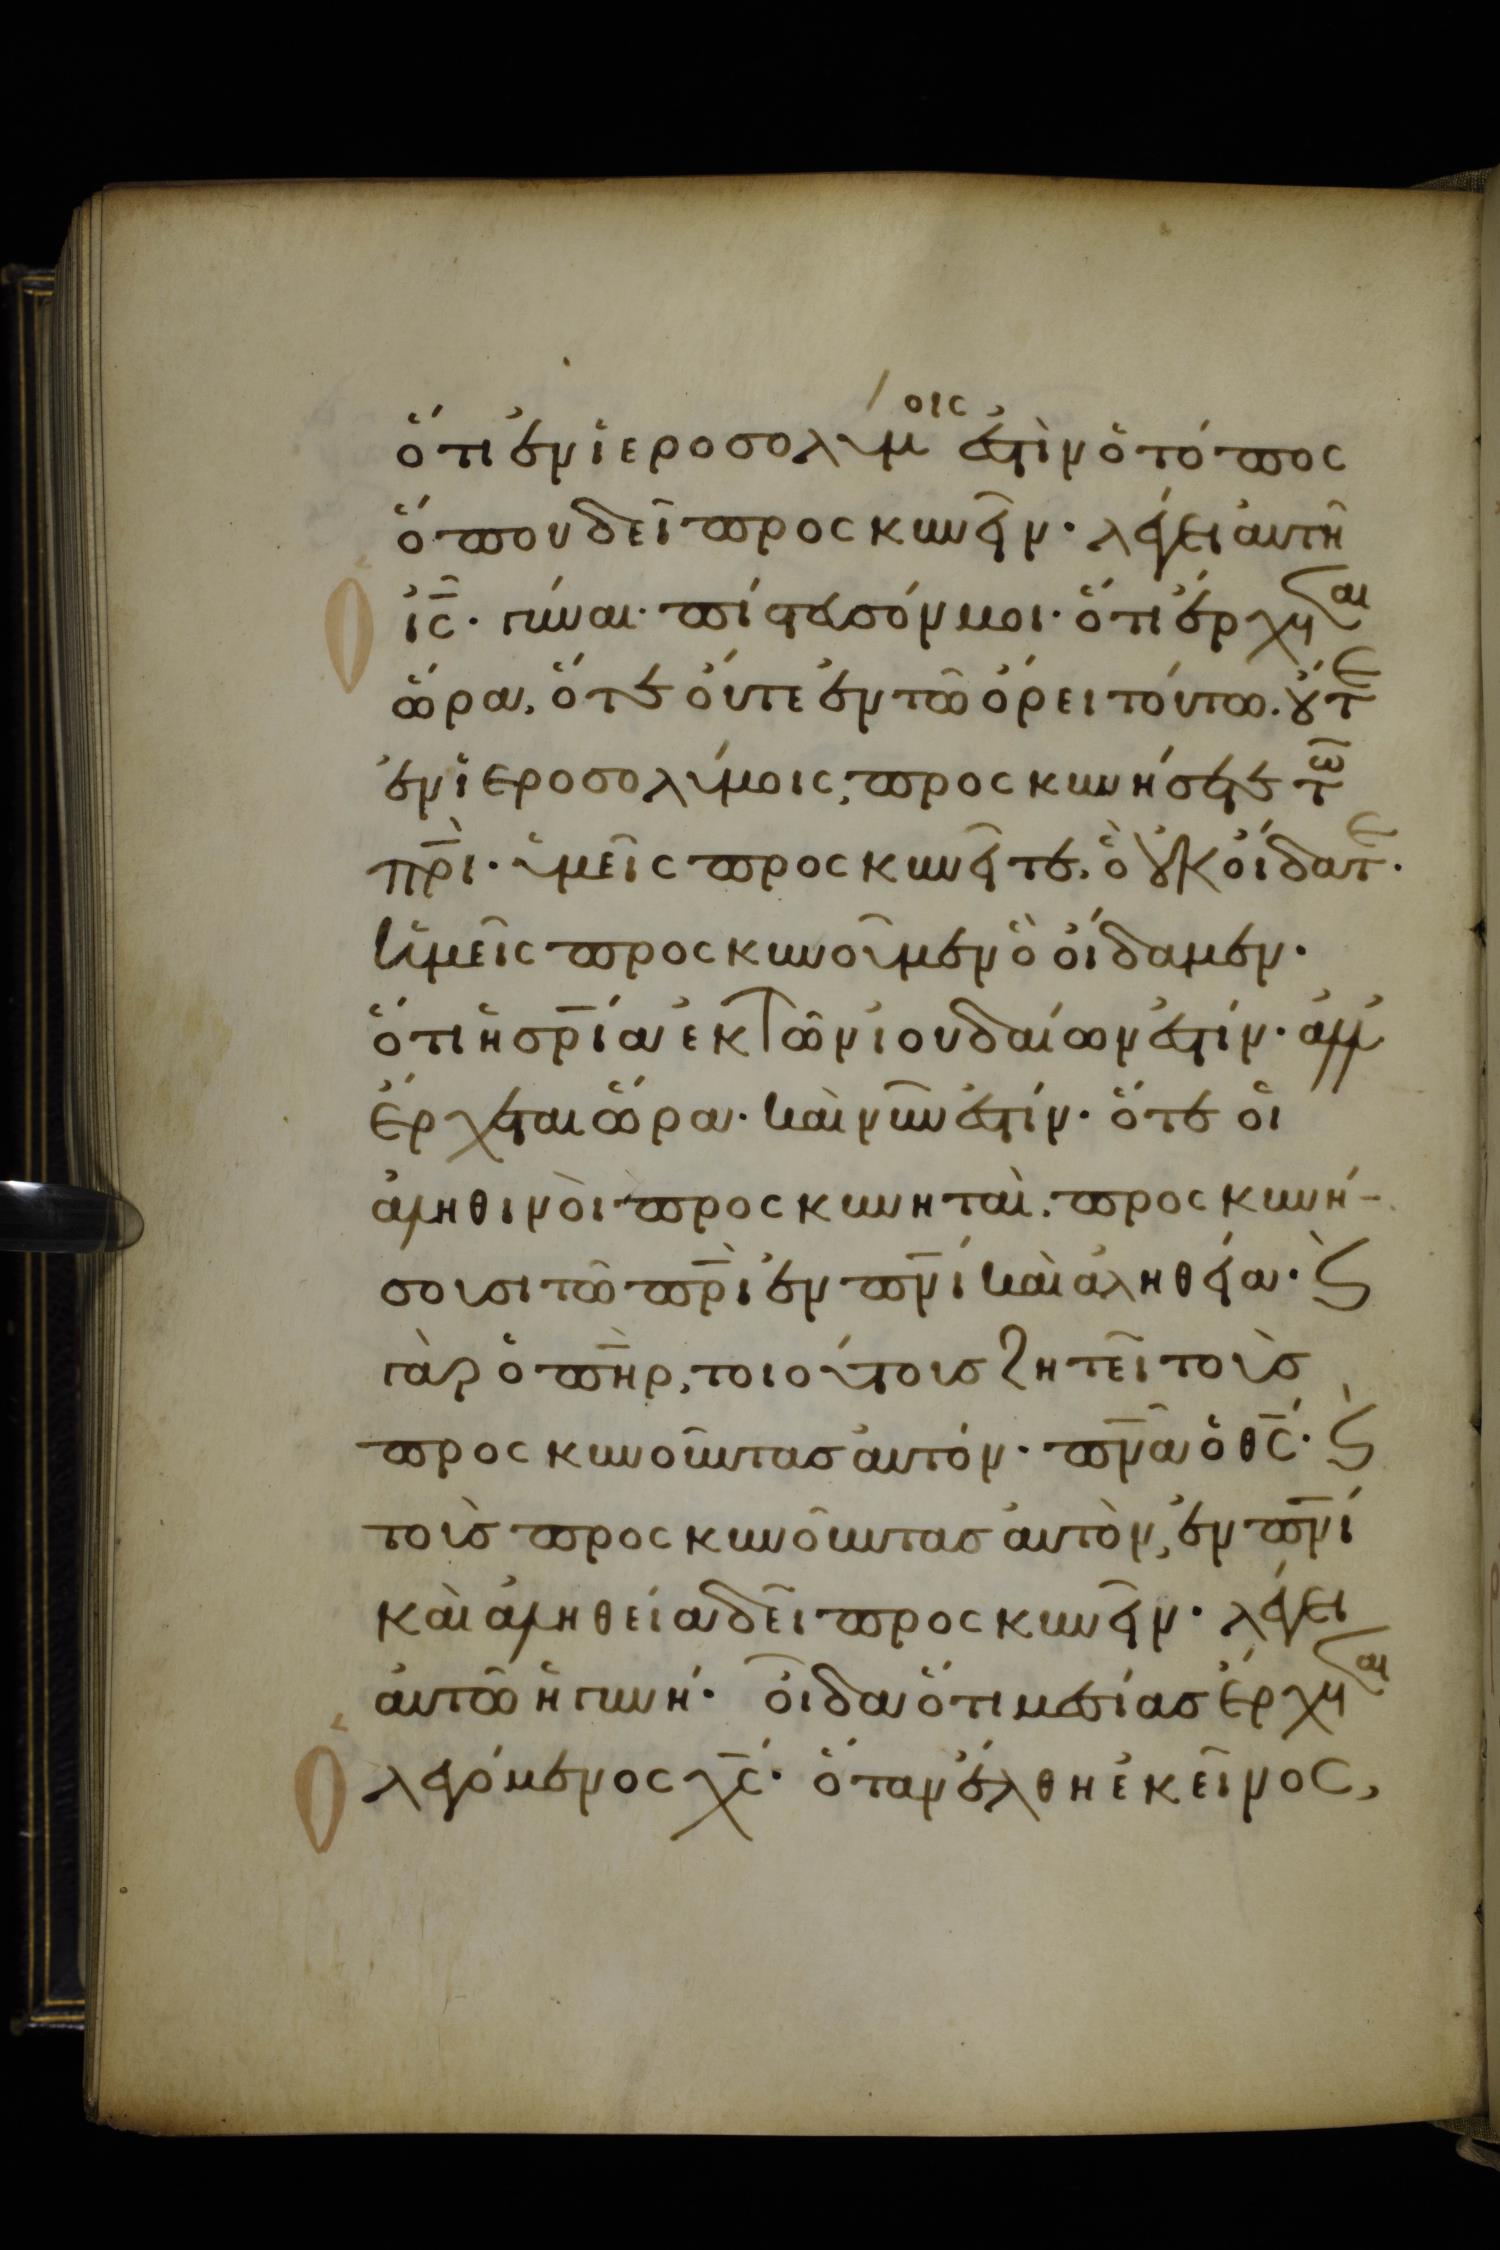 ὅτι ἐν ἱεροσολύμοις ἐστὶν ὁ τόπος
ὅπου δεῖ προσκυνεῖν· λέγει αὐτῆ
ὁ ἰ̅ς̅· γύναι· πίστευσόν μοι· ὅτι ἔρχεται
ὥρα, ὅτε οὔτε ἐν τῶ ὄρει τούτω· οὔτε
ἐν ἱεροσολύμοις, προσκυνήσετε τῶ
π̅ρ̅ι̅· ὑμεῖς προσκυνεῖτε, ὃ οὐκ οἴδατε·
ἡμεῖς προσκυνοῦμεν ὃ οἴδαμεν·
ὅτι ἡ σ̅ρ̅ί̅α̅ ἐκ τῶν ἰουδαίων ἐστίν· ἀλλ
ἔρχεται ὥρα· καὶ νῦν ἐστίν· ὅτε οἱ
ἀληθινοὶ προσκυνηταὶ, προσκυνή-
σουσι τῶ π̅ρ̅ι̅ ἐν π̅ν̅ι̅ καὶ ἀληθεία· καὶ
γὰρ ὁ π̅η̅ρ̅, τοιούτους ζητεῖ τοὺς
προσκυνοῦντας αὐτόν· π̅ν̅α̅ ὁ θ̅ς̅· καὶ
τοὺς προσκυνοῦντας αὐτὸν, ἐν π̅ν̅ι̅
καὶ ἀληθεία δεῖ προσκυνεῖν· λέγει
αὐτῶ ἡ γυνή· οἶδα ὅτι μεσίας ἔρχεται
ὁ λεγόμενος χ̅ς̅· ὅταν ἔλθη ἐκεῖνος,